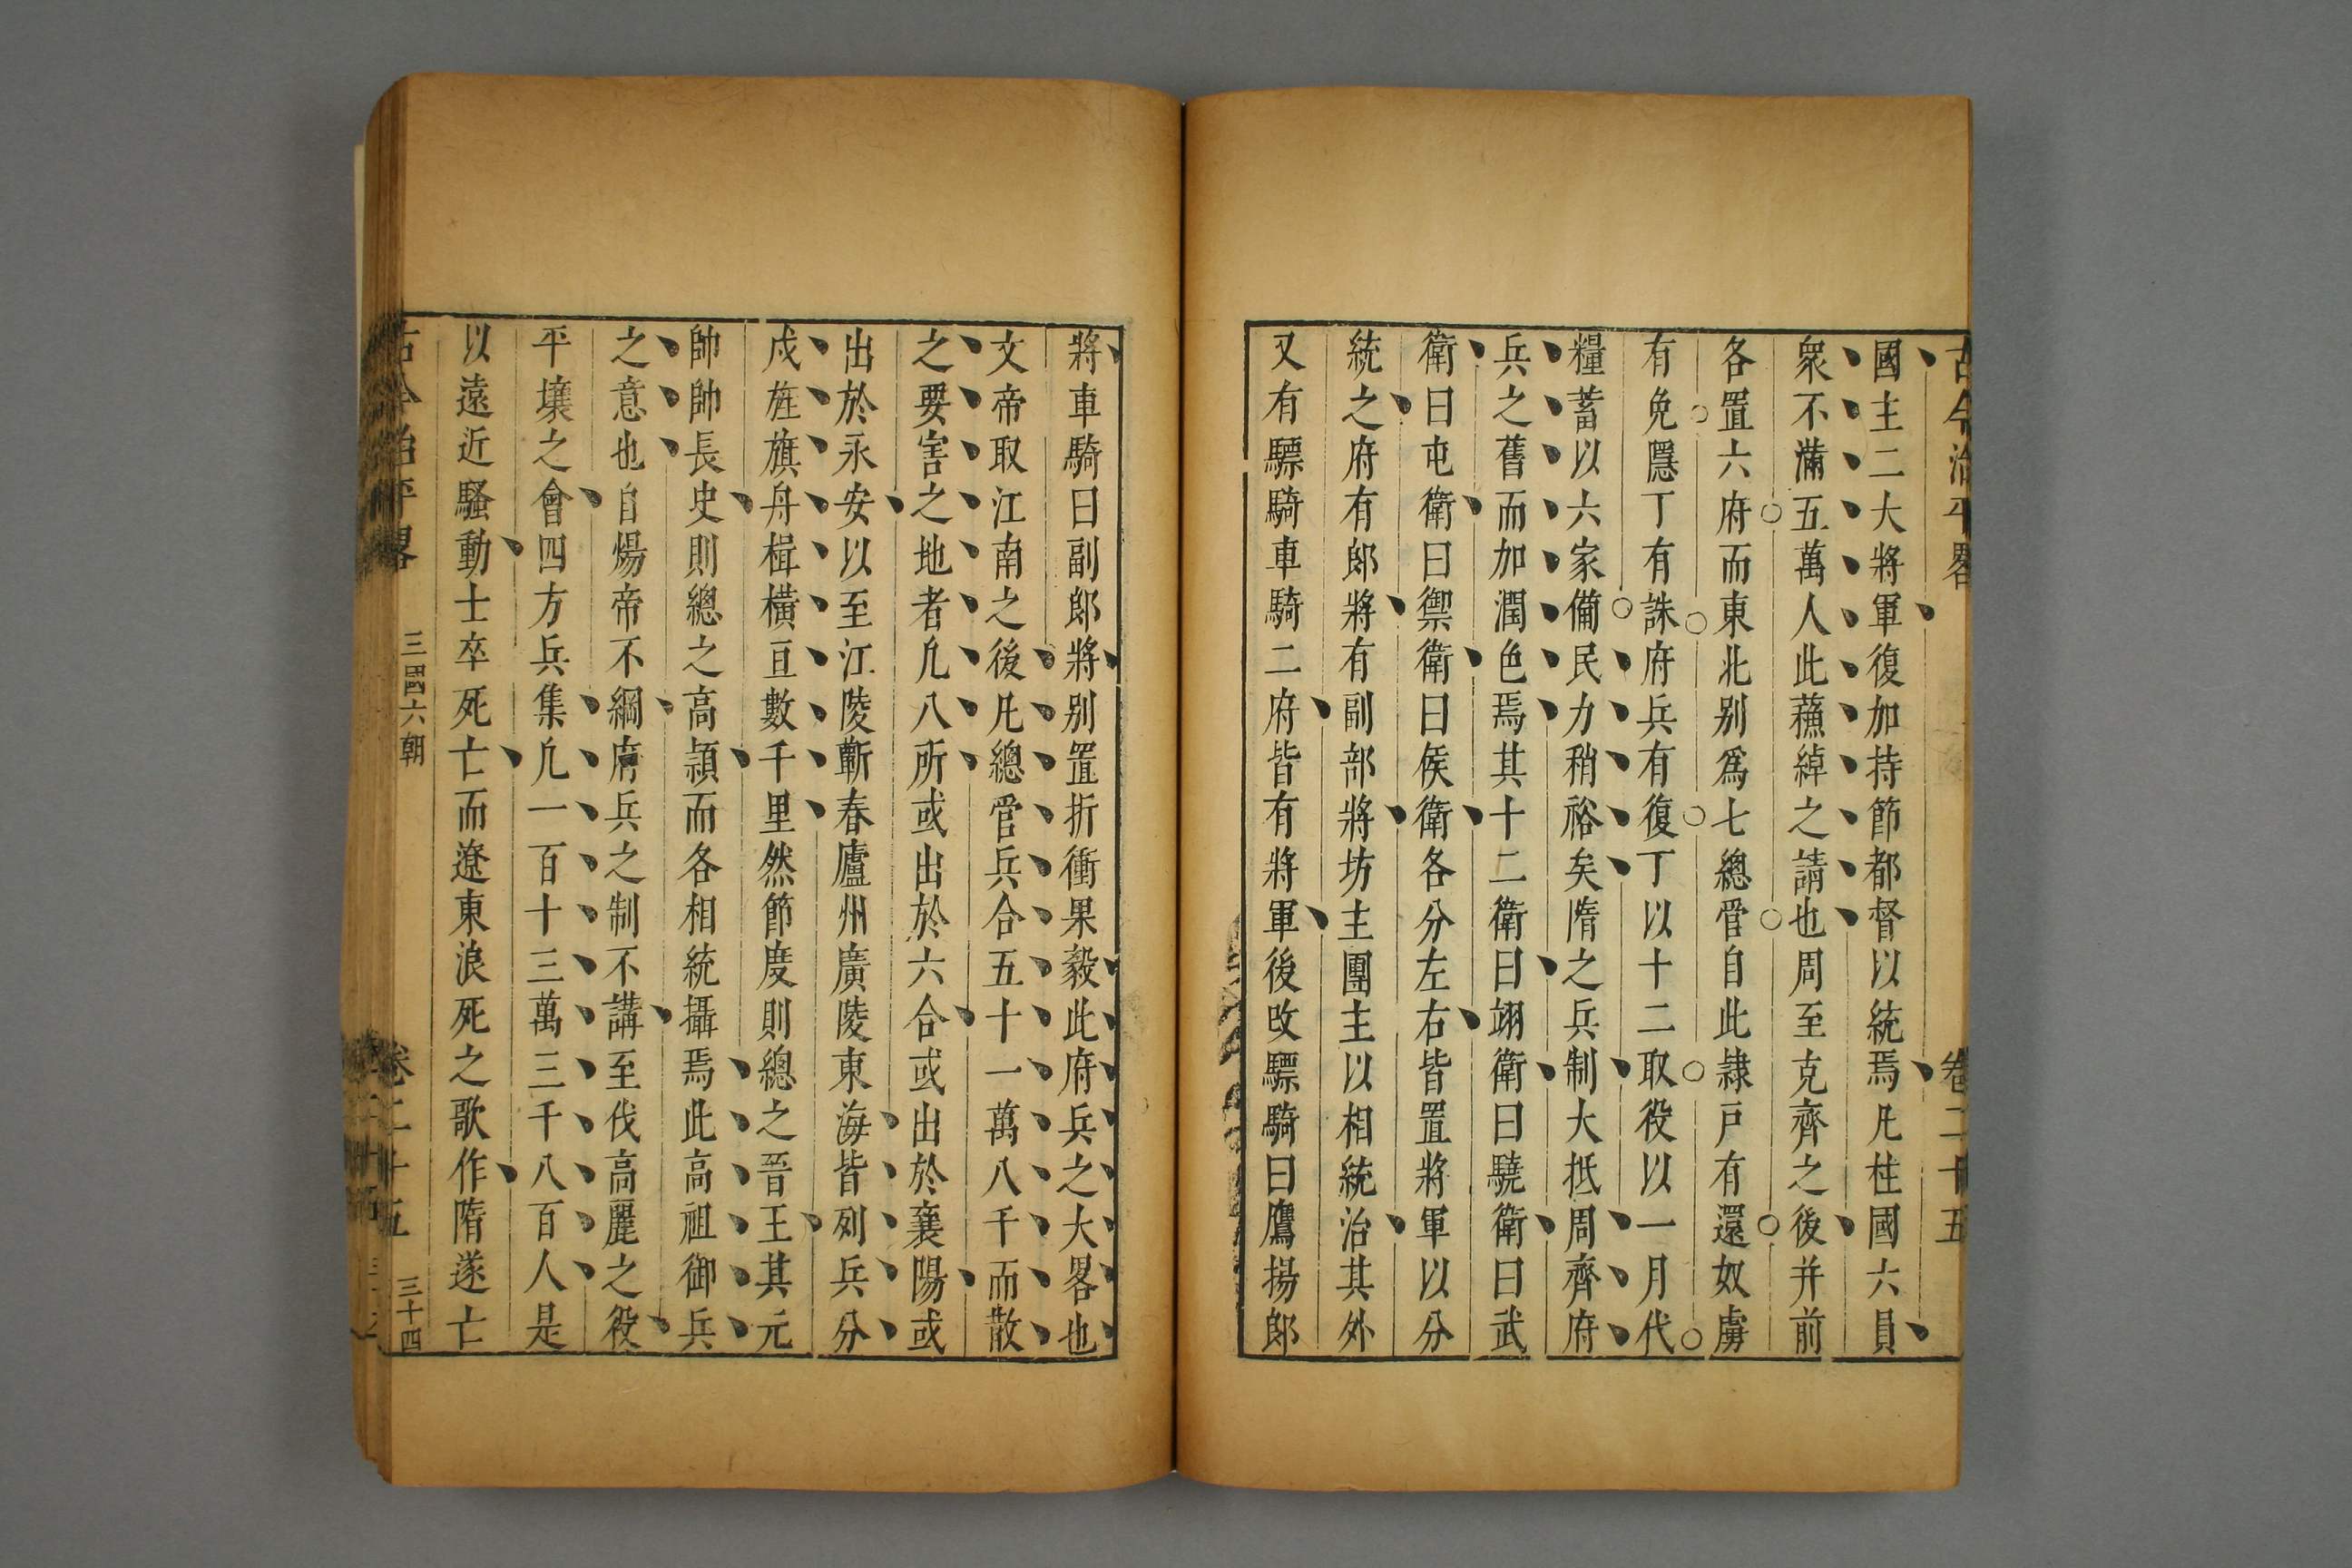 古今治平畧 卷二十五
國主二大將軍復加持節都督以統焉凡柱國六員
衆不滿五萬人此蘓綽之請也周至克齊之後并前
各置六府而東北别爲七總管自此隷戸有還奴虜
有免隱丁有誅府兵有復丁以十二取役以一月代
糧蓄以六家備民力稍裕矣隋之兵制大抵周齊府
兵之舊而加潤色焉其十二衛曰翊衛曰驍衛曰武
衛曰屯衛曰禦衛曰侯衛各分左右皆置將軍以分
統之府有郎將有副部將坊主團主以相統治其外
又有驃騎車騎二府皆有將軍後改驃騎曰鷹揚郎
將車騎曰副郎將别置折衝果毅此府兵之大畧也
文帝取江南之後凡總管兵合五十一萬八千而散
之要害之地者凢八所或出於六合或出於襄陽或
出於永安以至江陵蘄春廬州廣陵東海皆列兵分
戍旌旗舟楫橫亘數千里然節度則總之晉王其元
帥帥長史則總之高熲而各相統攝焉此高祖御兵
之意也自煬帝不綱府兵之制不講至伐高麗之役
平壤之會四方兵集凢一百十三萬三千八百人是
以遠近騷動士卒死亡而遼東浪死之歌作隋遂亡
古今治平畧 三國六朝 卷二十五 三十四